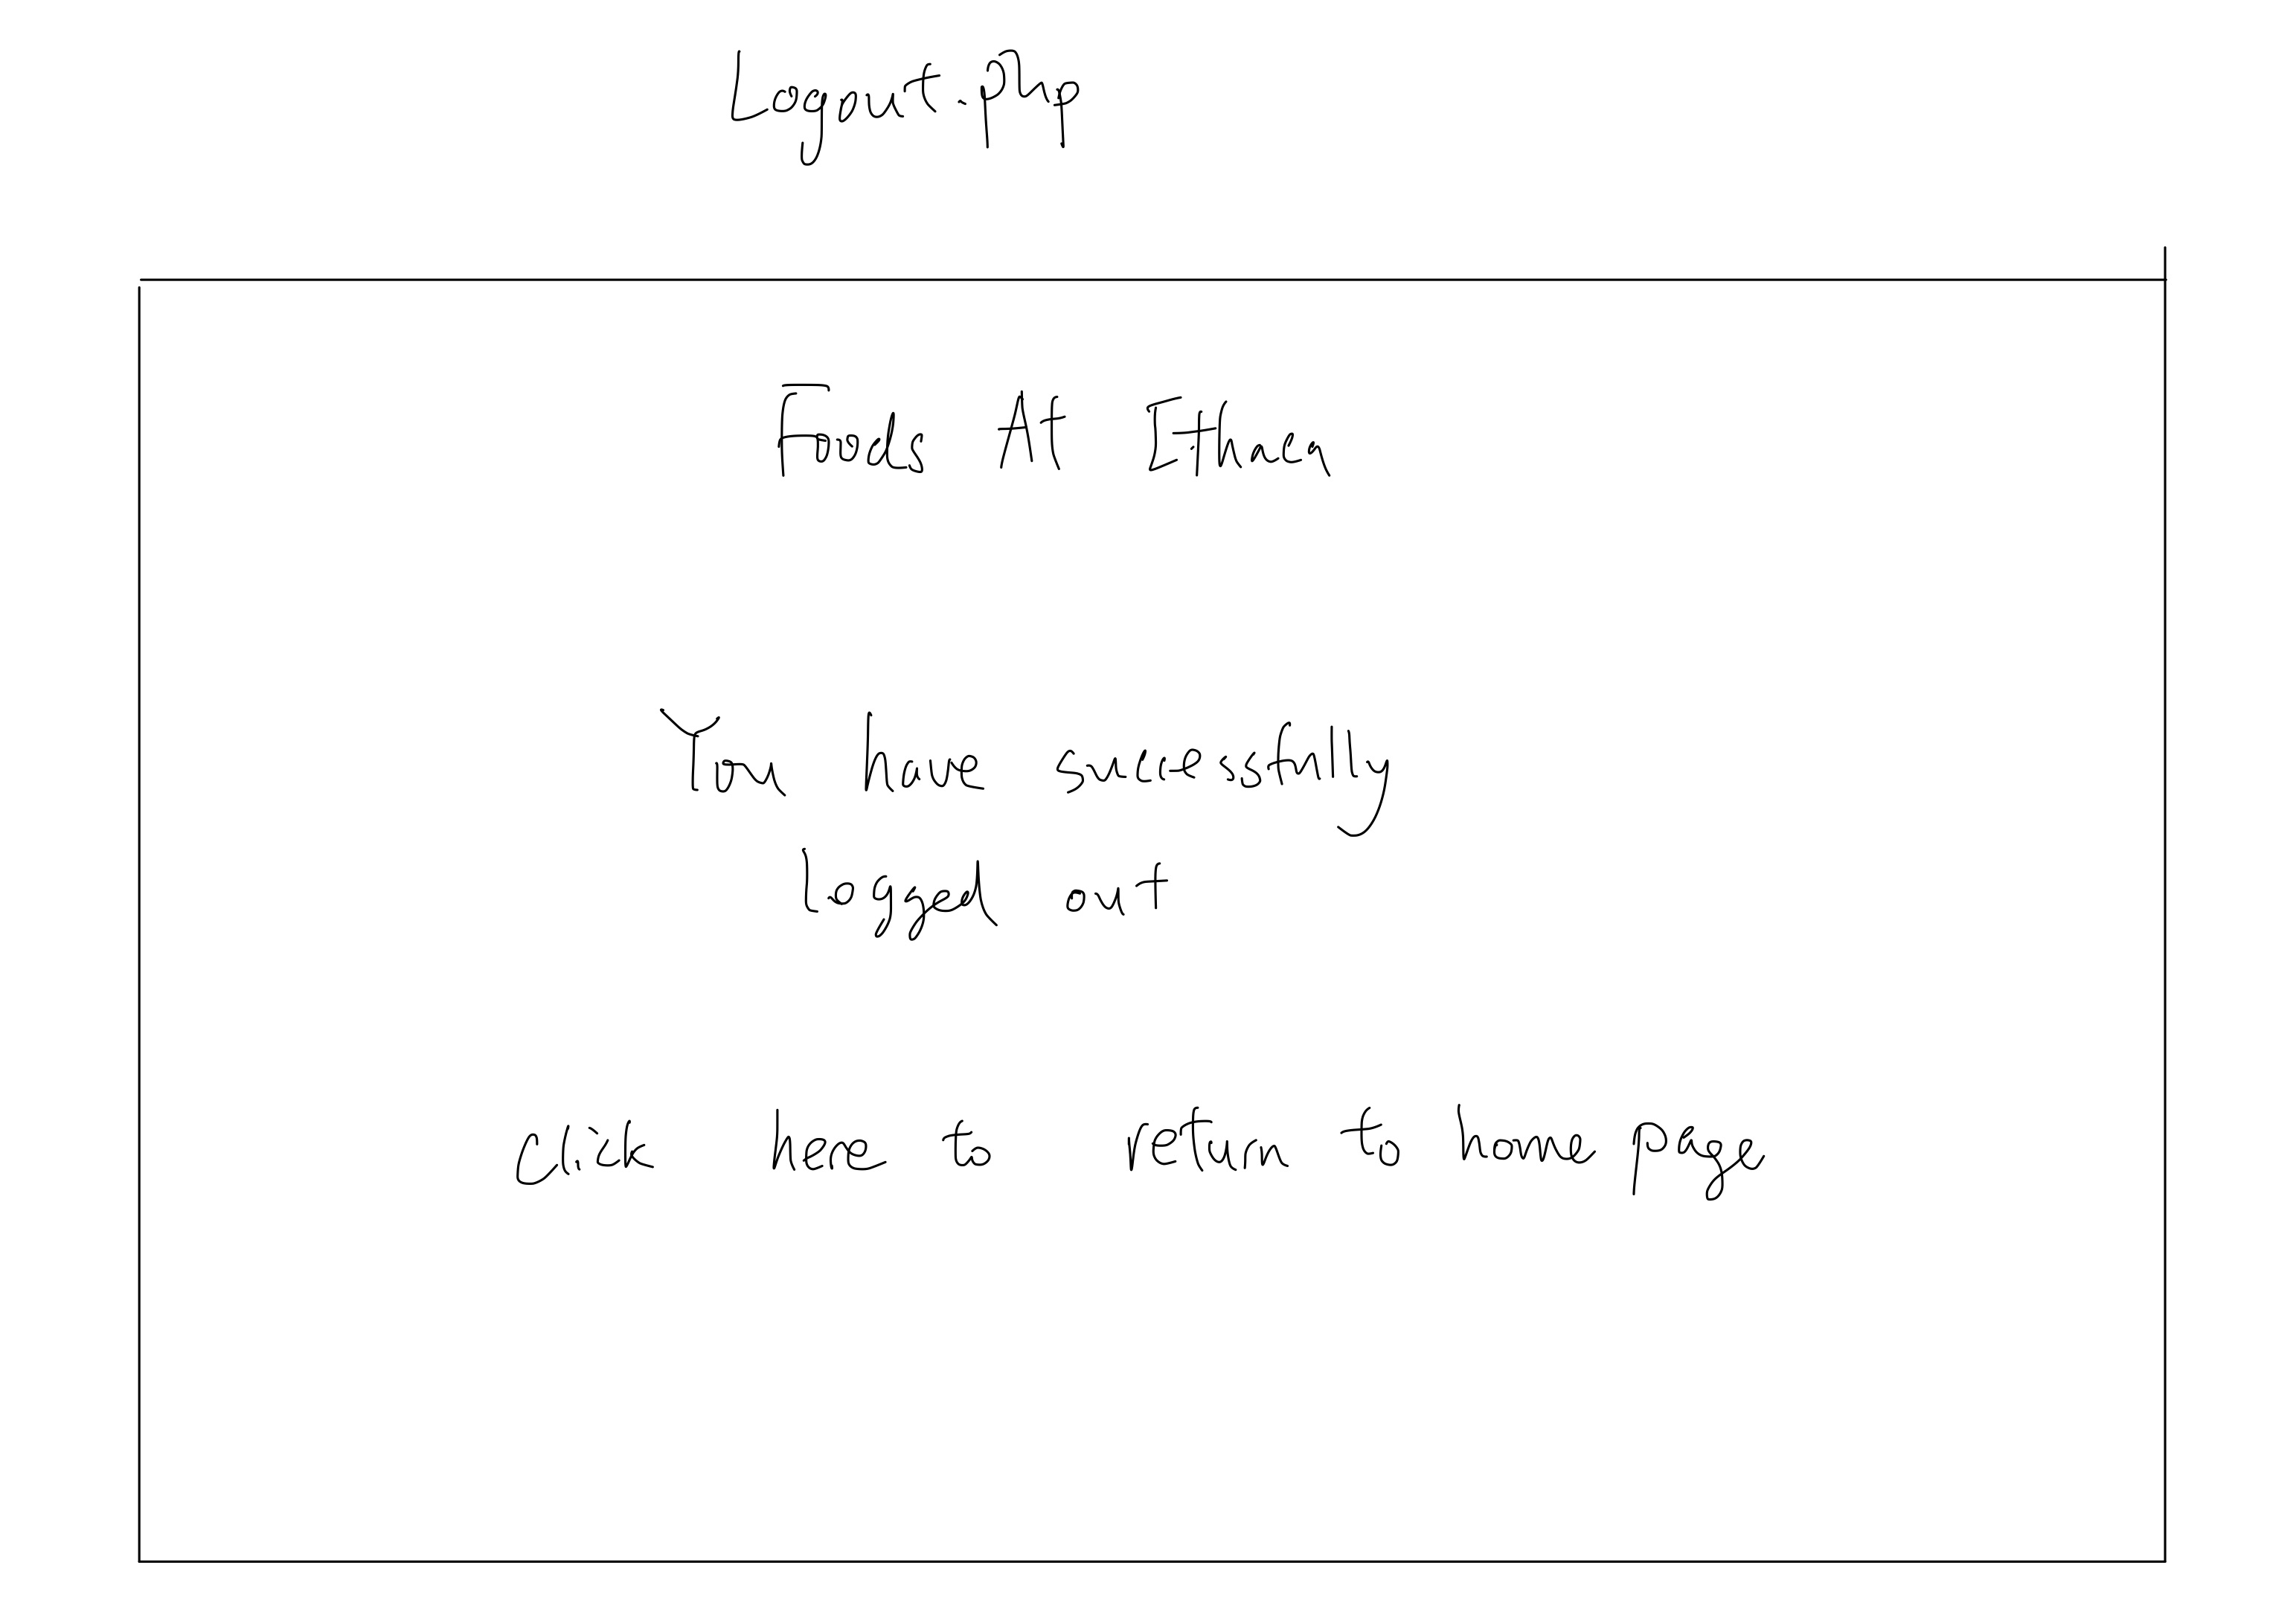 Logout.php
Foods At Ithaca
You have successfully
logged out
Click here to return to home page